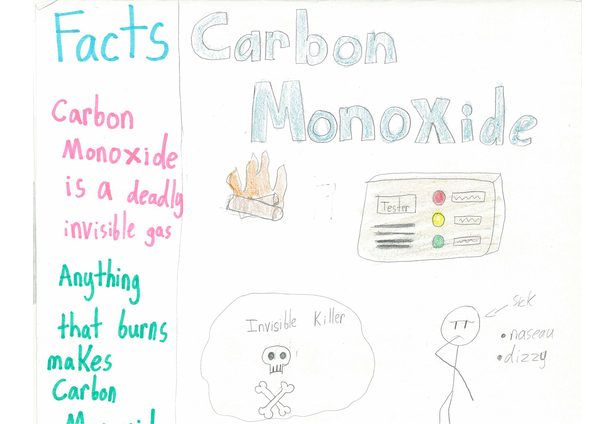 Facts
Carbon
Monoxide
is a deadly
invisible gas
Anything
that burns
makes
Carbon
Carbon
Monoxide
Tester
Invisible Killer
Sick
• naseau
• dizzy